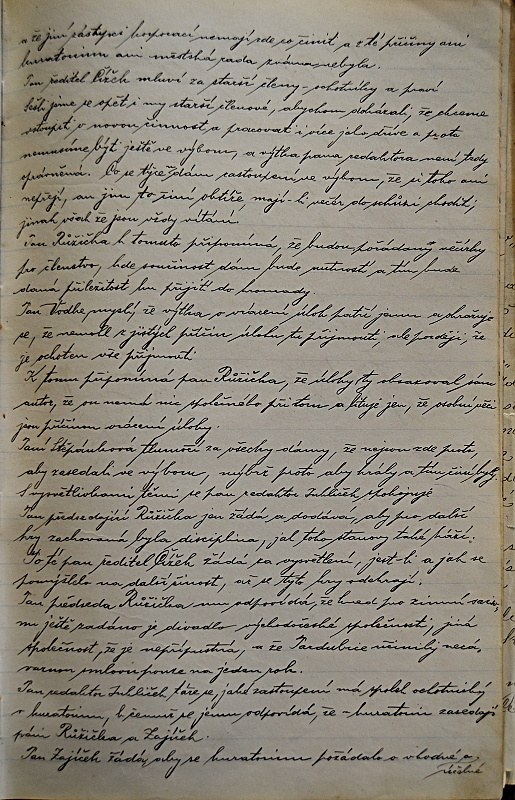 a že jiní zástupci korporací nemají zde co činit a z té příčiny ani
kuratorium ani městská rada zvána nebyla.
Pan ředitel Čížek mluví za starší členy-ochotníky a praví
sešli jsme se opět i my starší členové, abychom dokázali, že chceme
vstoupit v novou činnost a pracovati i více jako dříve a proto
nemusíme býti ještě ve výboru, a výtka pana redaktora není tedy
oprávněná. Co se týče dám zastoupení ve výboru, že si toho ani
nepřejí, an jim to činí obtíže, mají-li večer do schůzí choditi,
jinak však že jsou vždy vítány.
Pan Růžička k tomuto připomíná, že budou pořádány večírky
pro členstvo, kde součinnost dám bude nutností a tím bude
daná příležitost ku přijití do hromady.
Pan Vodhe myslí, že výtka o vrácení úloh patří jemu a ohražuje
se, že nemohl z jistých příčin úlohu tu přijmouti ale později, že
je ochoten vše přijmouti.
K tomu připomíná pan Růžička, že úlohy ty obsazoval sám
autor, že on nemá nic společného při tom a lituje jen, že osobní věci
jsou příčinou vrácení úlohy.
Paní Štěpánková tlumočí za všechny dámy, že nejsou zde proto,
aby zasedali ve výboru, nýbrž proto aby hrály a tím činny byly.
S vysvětlivkami těmi se pan redaktor Suhlíček spokojuje
Pan předsedající Růžička jen žádá a dodává, aby pro další
hry zachována byla disciplina, jak toho stanovy také káží.
Poté pan ředitel Čížek žádá za vysvětlení, jest-li a jak se
pomýšlelo na další činost, až se tyto hry odehrají.
Pan předseda Růžička mu odpovídá, že hned pro zimní saisonu
mu ještě zadáno je divadlo východočeské společnosti, jiná
společnost, že je nepřípustná, a že Pardubice učinily nezávaznou
smlouvu pouze na jeden rok.
Pan redaktor Suhlíček táže se, jaké zastoupení má spolek ochotnický
v kuratoriu, k čemuž se jemu odpovídá, že v kuratoriu zasedají
páni Růžička a Zajíček.
Pan Zajíček žádá, aby se kuratorium požádalo o vhodné a
účelné